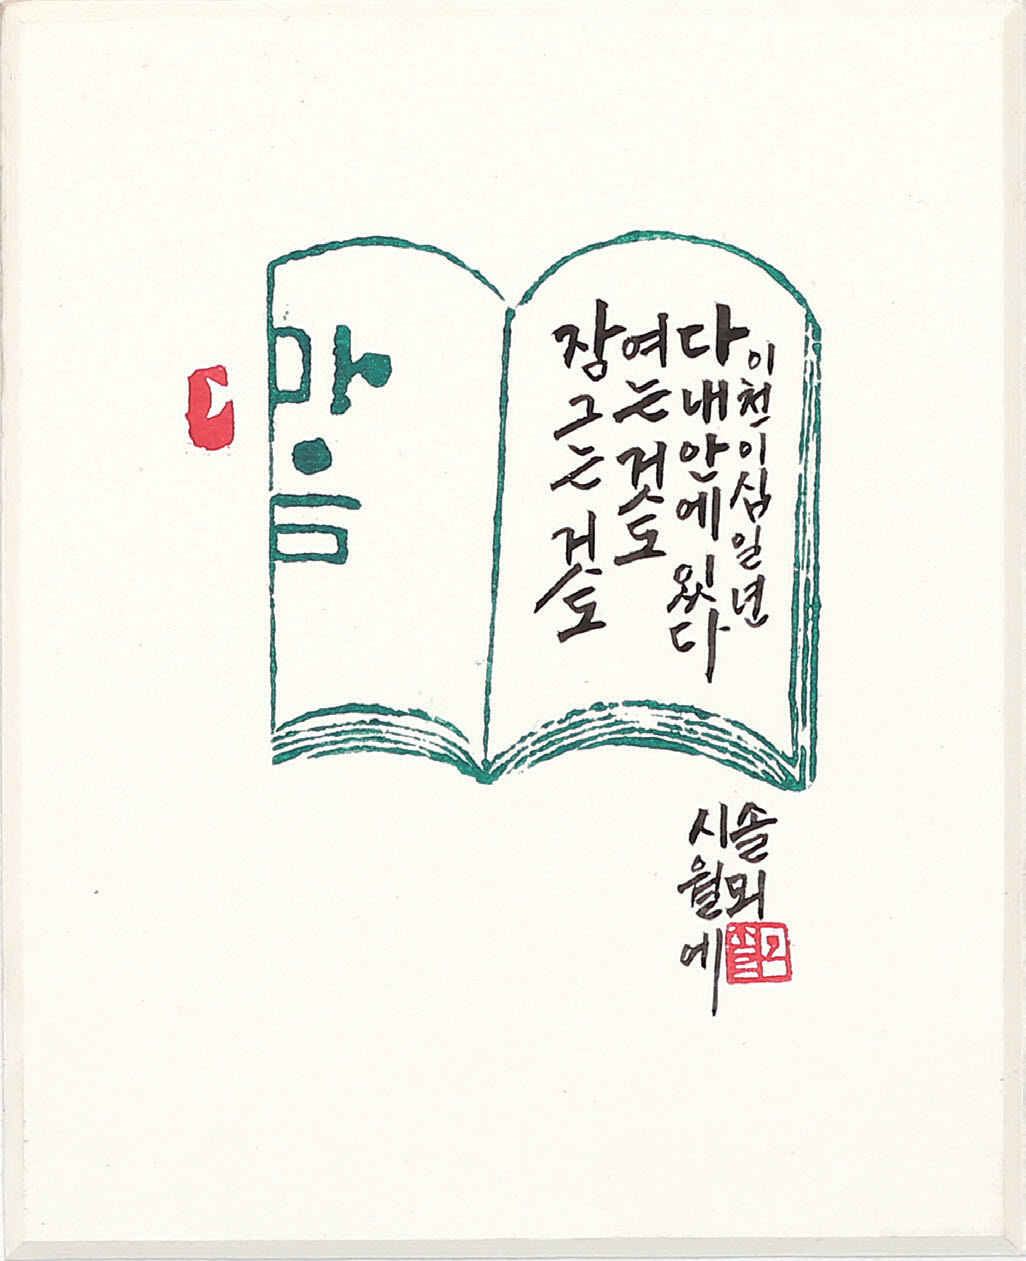 마음
잠그는 것도
여는 것도
다 내 안에 있다
이천이십일년
시월에
솔뫼